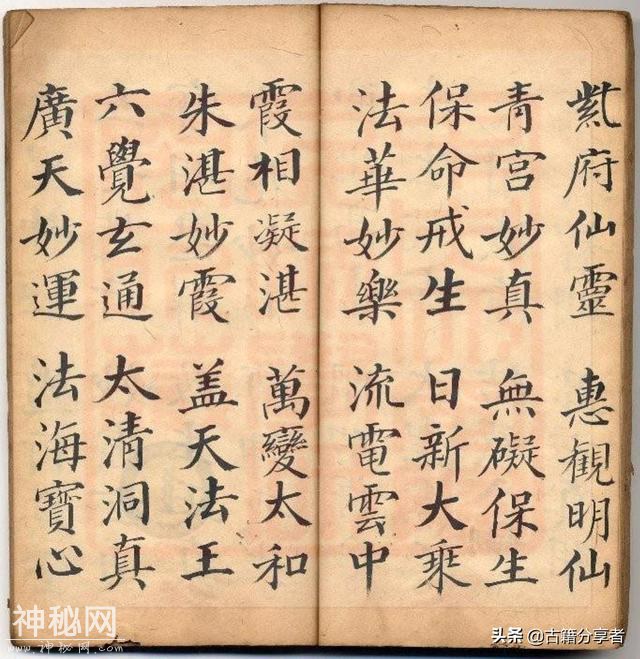 紫府仙靈 惠観明仙
青宮妙真 無礙保生
保命戒生 日新大乗
法華妙樂 流電雲中
霞相凝湛 萬變太和
朱湛妙霞 盖天法王
六覺玄通 太清洞真
廣天妙運 法海寶心
神秘网
www.shenmiwang.com
头条 @古籍分享者